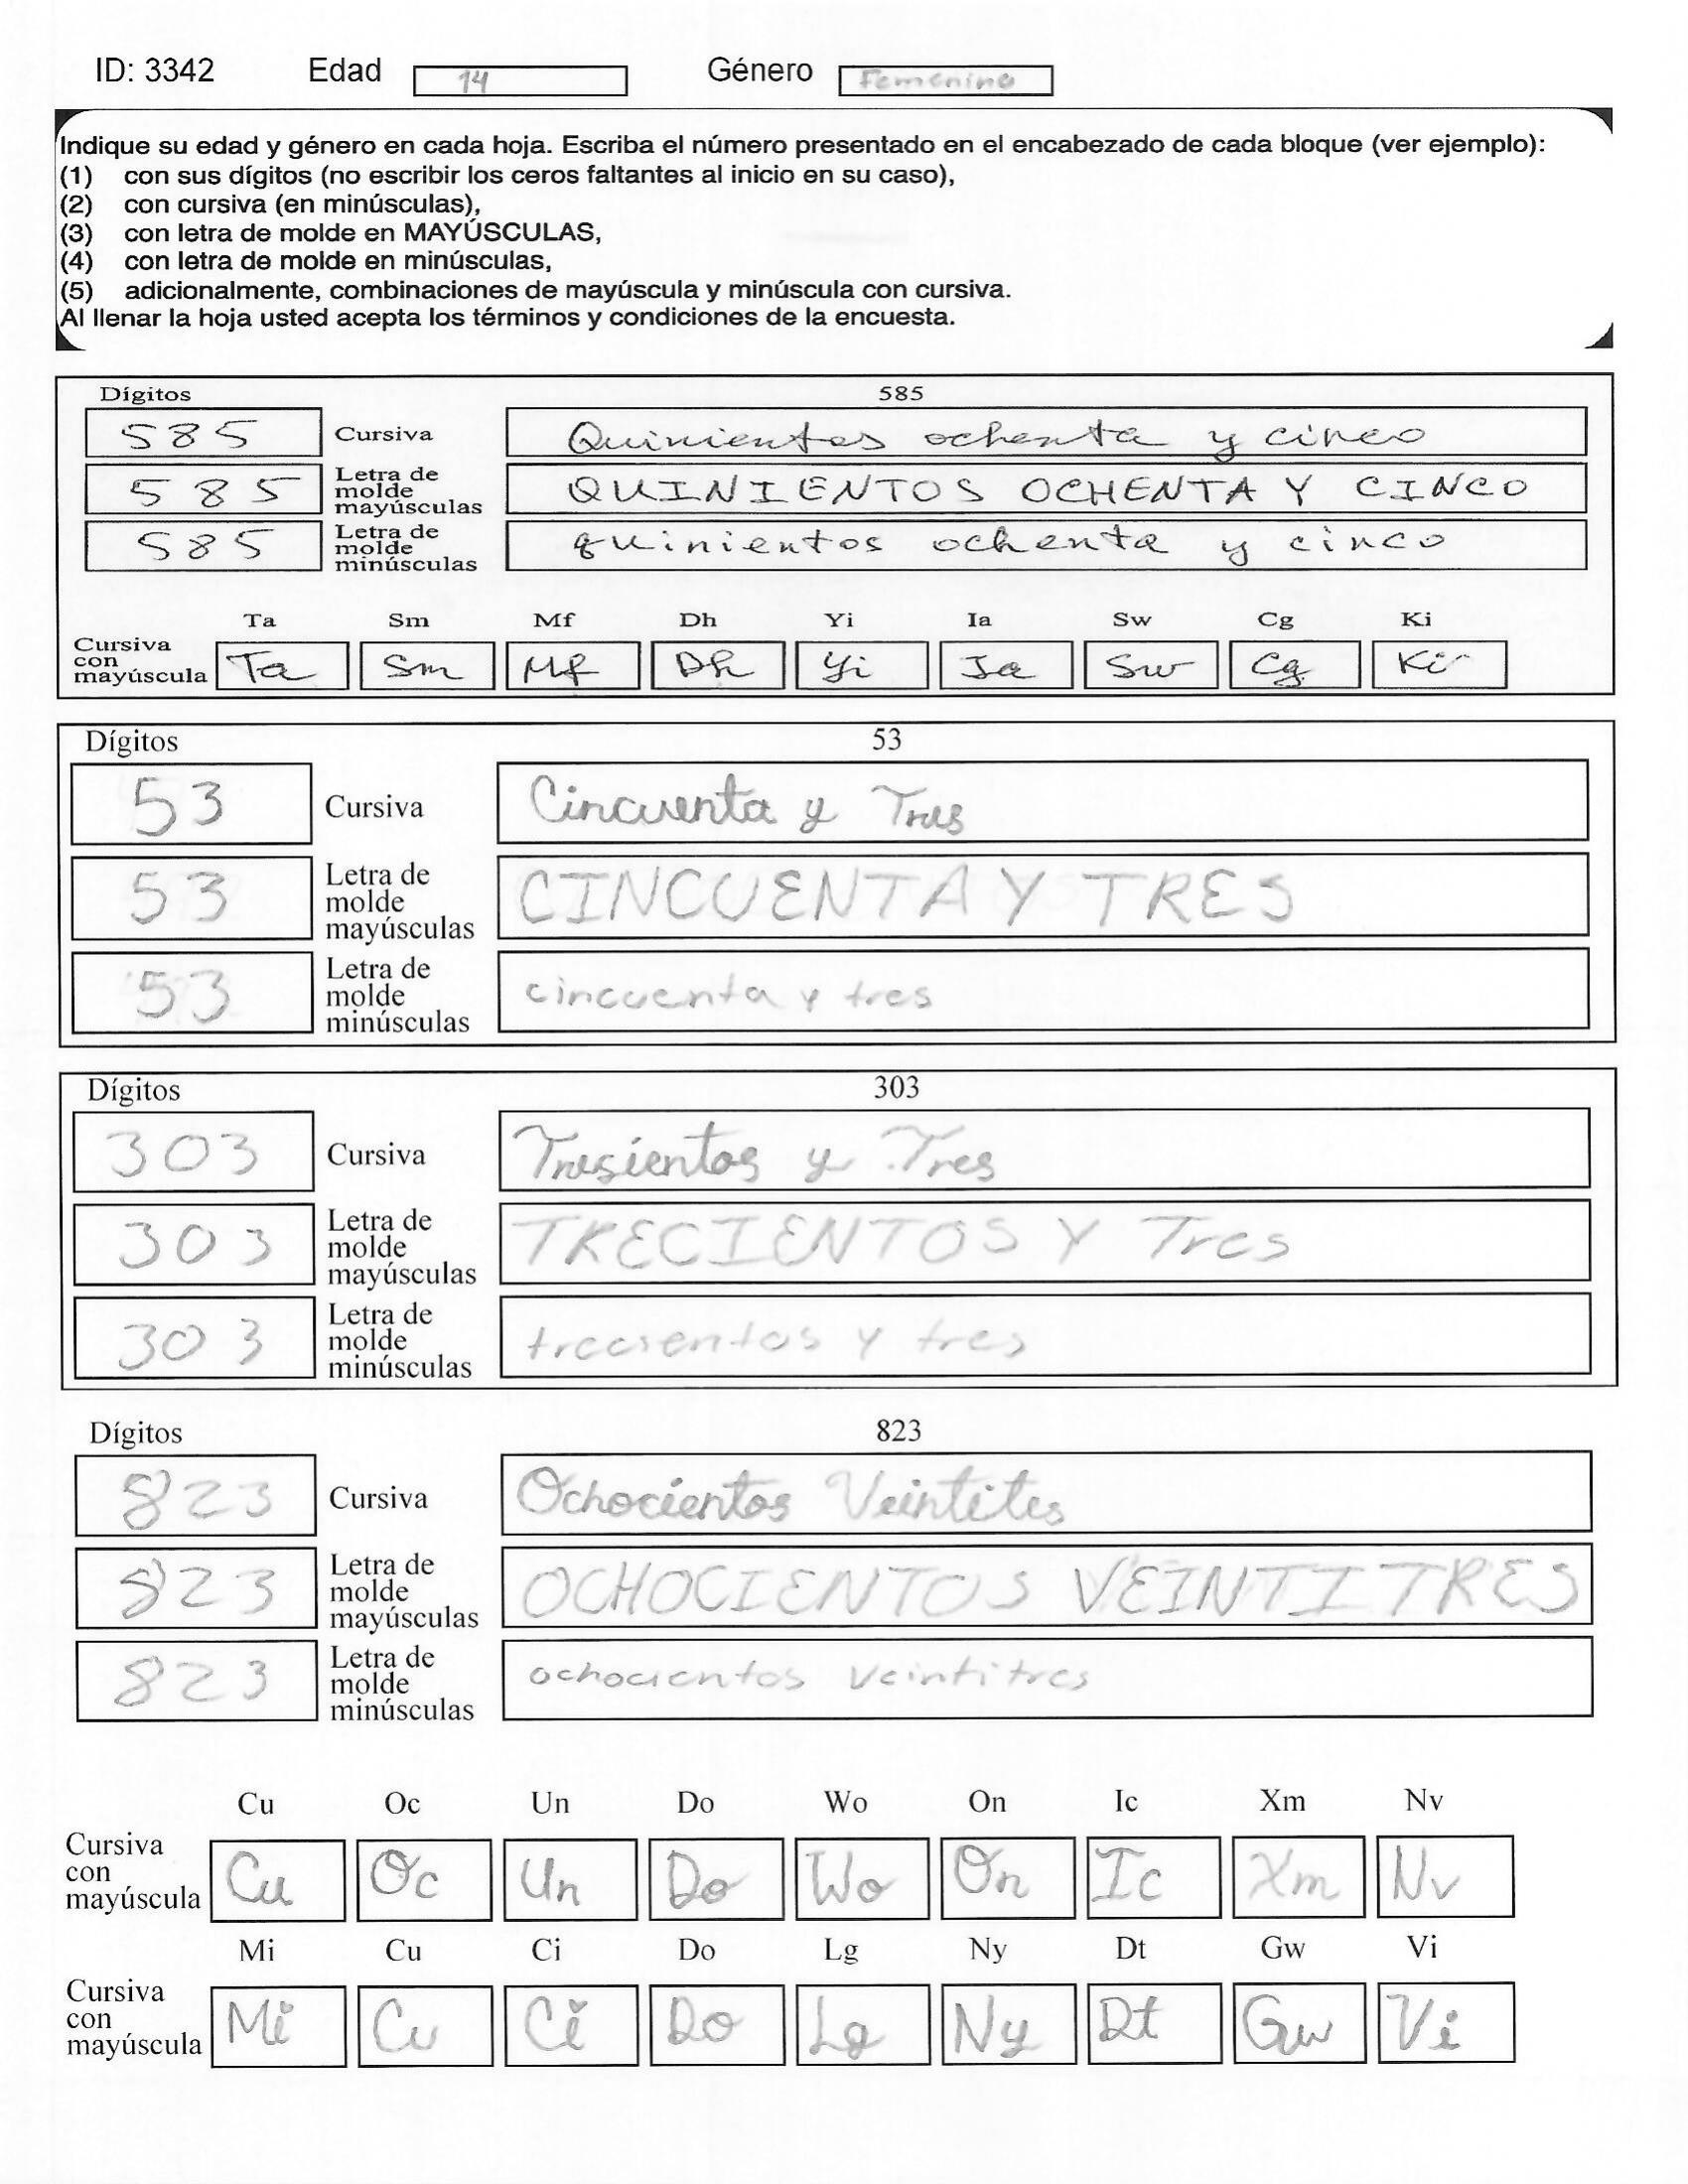 ID: 3342 Edad 14 Género Femenino
Indique su edad y género en cada hoja. Escriba el número presentado en el encabezado de cada bloque (ver ejemplo):
(1) con sus dígitos (no escribir los ceros faltantes al inicio en su caso),
(2) con cursiva (en minúsculas),
(3) con letra de molde en MAYÚSCULAS,
(4) con letra de molde en minúsculas,
(5) adicionalmente, combinaciones de mayúscula y minúscula con cursiva.
Al llenar la hoja usted acepta los términos y condiciones de la encuesta.
Dígitos 585
585 Cursiva Quinientos ochenta y cinco
585 Letra de molde mayúsculas QUINIENTOS OCHENTA Y CINCO
585 Letra de molde minúsculas quinientos ochenta y cinco
Ta Sm Mf Dh Yi Ia Sw Cg Ki
Cursiva con mayúscula Ta Sm Mf Dh Yi Ia Sw Cg Ki
Dígitos 53
53 Cursiva Cincuenta y Tres
53 Letra de molde mayúsculas CINCUENTA Y TRES
53 Letra de molde minúsculas cincuenta y tres
Dígitos 303
303 Cursiva Tresientos y Tres
303 Letra de molde mayúsculas TRECIENTOS Y Tres
303 Letra de molde minúsculas trecsentos y tres
Dígitos 823
823 Cursiva Ochocientos Veintites
823 Letra de molde mayúsculas OCHOCIENTOS VEINTITRES
823 Letra de molde minúsculas ochocientos veintitres
Cu Oc Un Do Wo On Ic Xm Nv
Cursiva con mayúscula Cu Oc Un Do Wo On Ic Xm Nv
Mi Cu Ci Do Lg Ny Dt Gw Vi
Cursiva con mayúscula Mi Cu Ci Do Lg Ny Dt Gw Vi